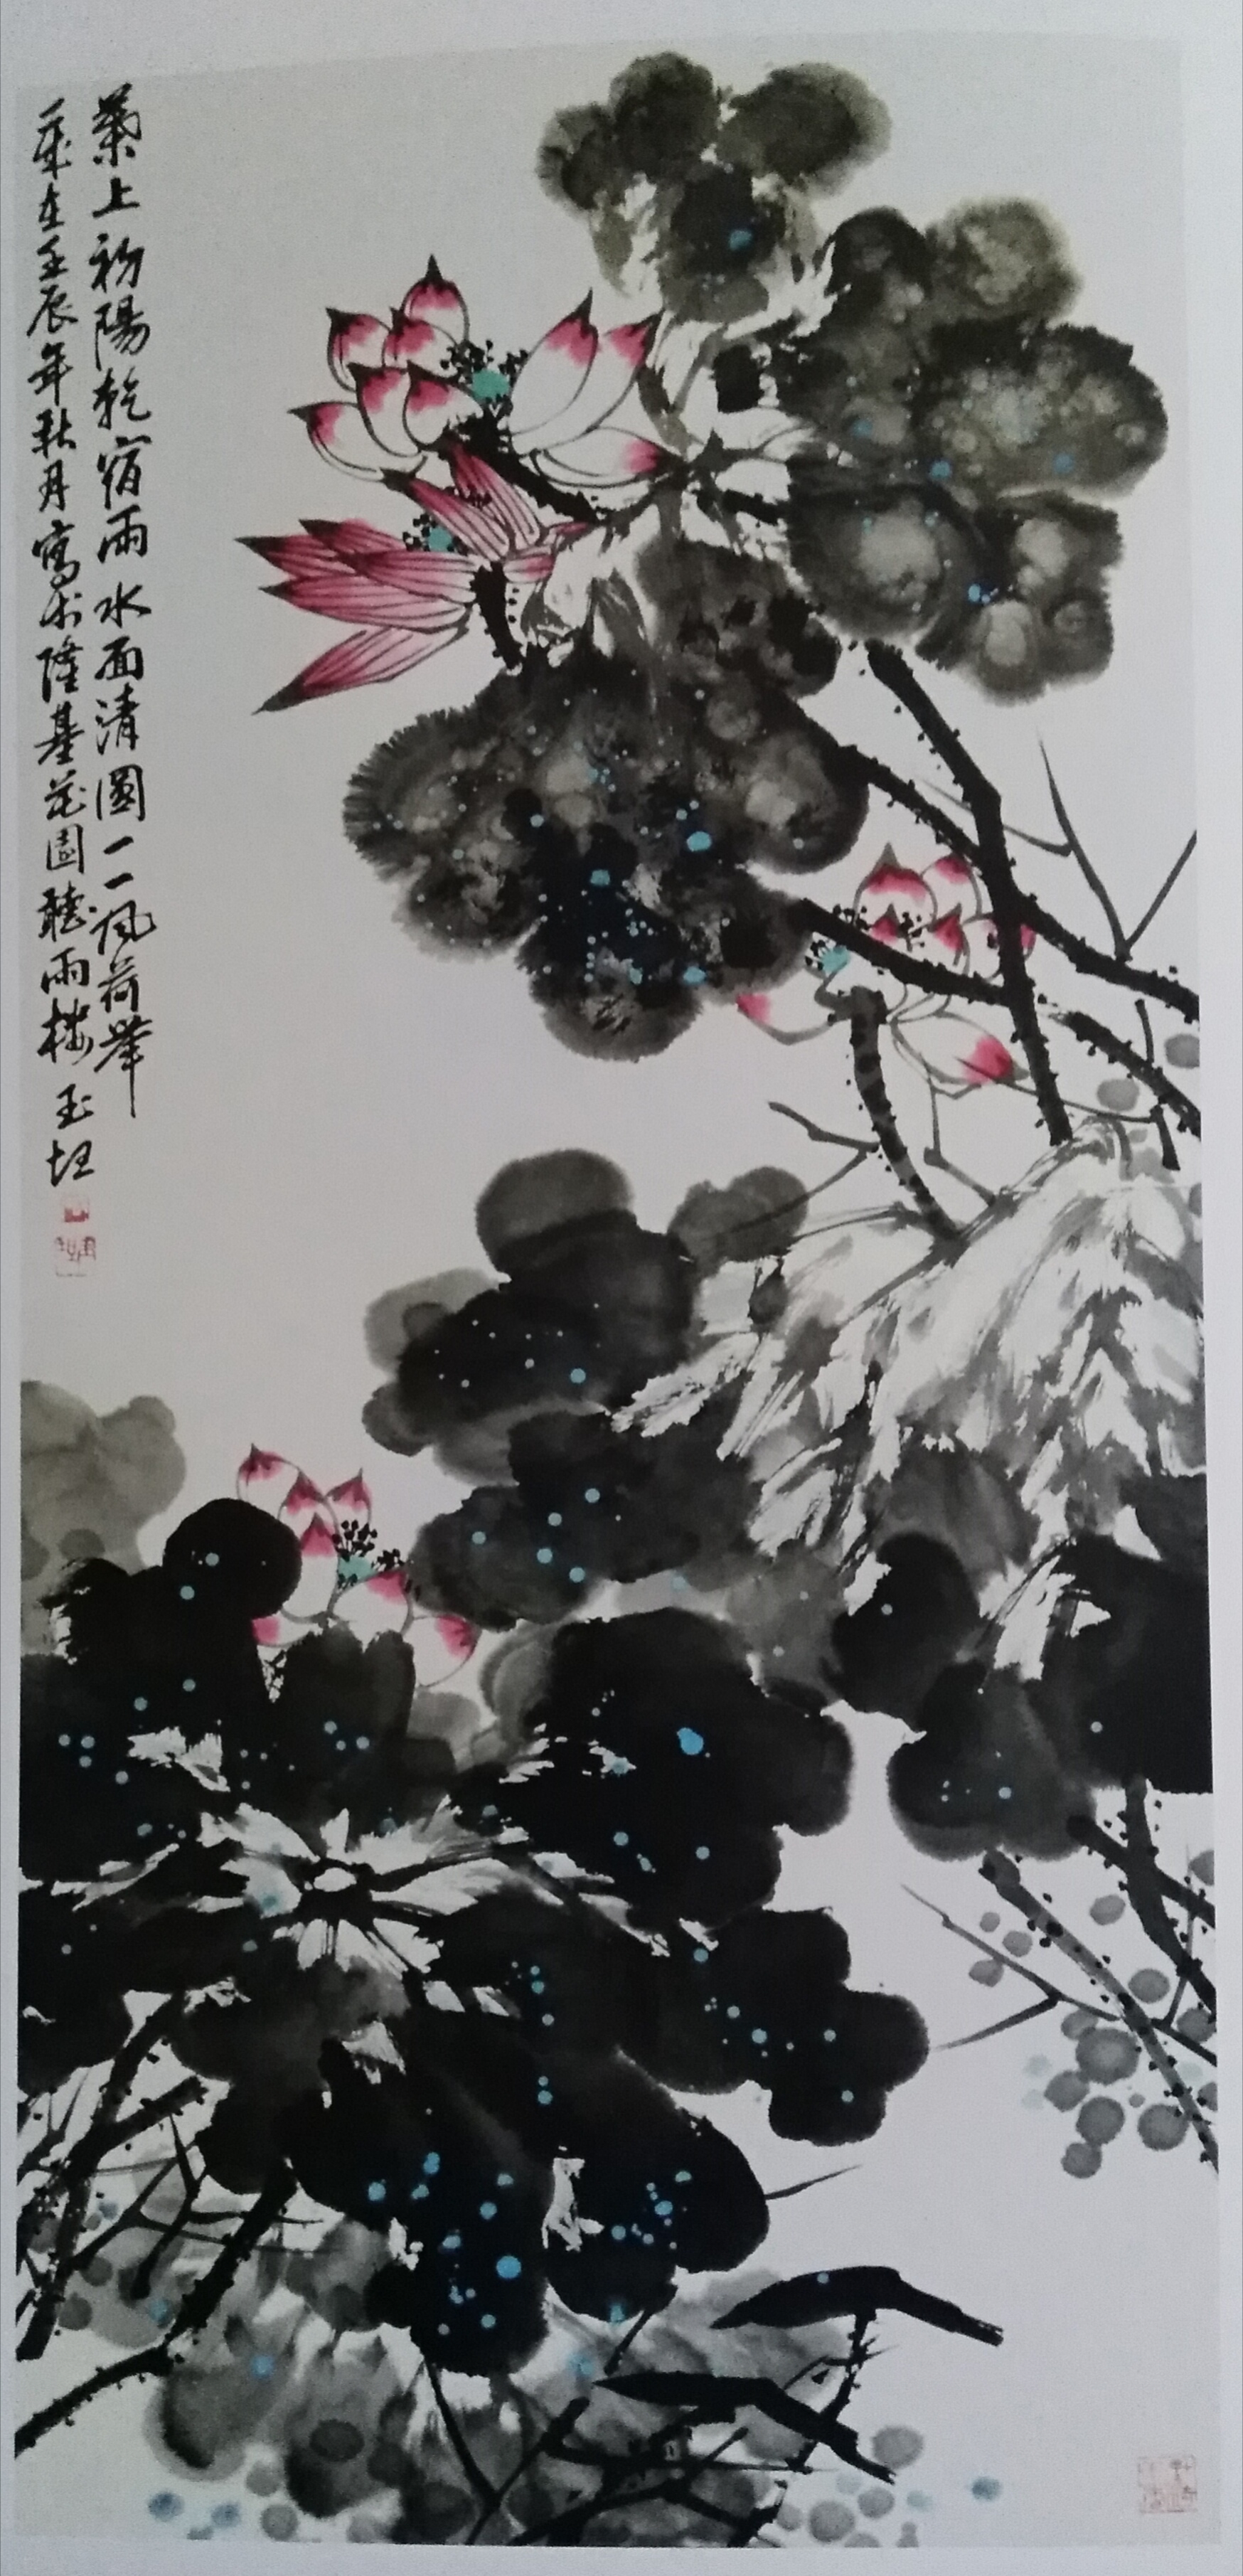 葉上初陽乾宿雨水面清圓一一風荷舉
歲在壬辰年秋月寫於隆基花園聽雨楼玉坦